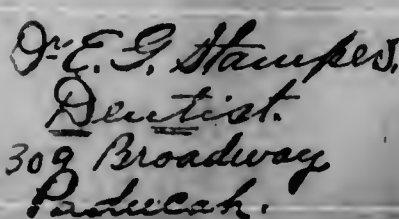 Dr E. G. Stamper.
Dentist.
309 Broadway
Paducah.